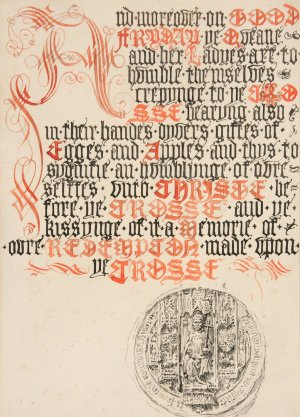 And moreover on GOOD
FRYDAY ye Qveane
and her Ladyes are to
hvmble themselves
crepynge to ye CRO
SSE bearyng also
in their handes dyvers giftes of
Egges and Apples and thys to
signifie an hvmblynge of ovre
selffes vnto CHRISTE be
fore ye CROSSE and ye
kissynge of it a Memorie of
ovre REDEMPTON made vpon
ye CROSSE